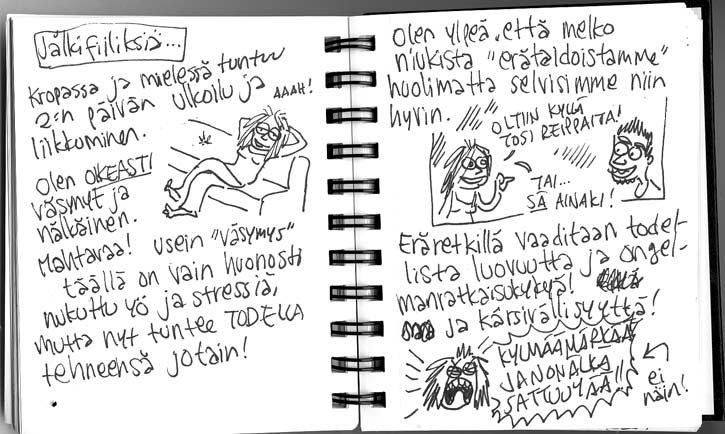 Jälkifiiliksiä...
Kropassa ja mielessä tuntuu
2:n päivän ulkoilu ja
liikkuminen.
AAAH!
Olen OKEASTI
väsynyt ja
nälkäinen.
Mahtavaa! Usein "väsymys"
täällä on vain huonosti
nukuttu yö ja stressiä,
mutta nyt tuntee TODELLA
tehneensä jotain!
Olen ylpeä, että melko
niukista "erätaidoistamme"
huolimatta selvisimme niin
hyvin.
OLTIIN KYLLÄ
TOSI REIPPAITA!
TAI...
SÄ AINAKI!
Eräretkillä vaaditaan todel-
lista luovuutta ja ongel-
manratkaisukykyä!
ja kärsivällisyyttä!
KYLMÄÄMÄRKÄÄ
JANONÄLKÄ
SATTUUYÄÄ!!
ei
näin!